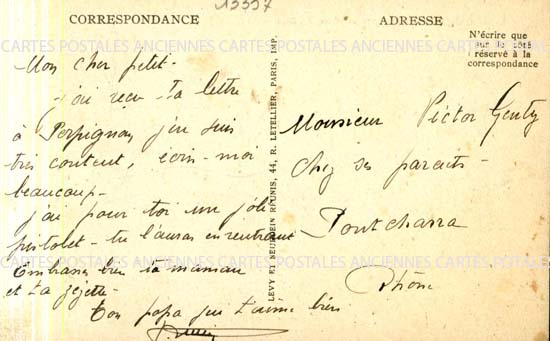 13357
CORRESPONDANCE
ADRESSE
N'écrire que
sur le côté
réservé à la
correspondance
CARTES POSTALES ANCIENNES
Mon cher petit-
j'ai reçu ta lettre
à Perpignan j'en suis
très content, écris-moi
beaucoup-
j'ai pour toi un joli
pistolet - tu l'auras en rentrant
Embrasse bien ta maman
et ta
Ton papa qui t'aime bien
LEVY ET NEURDEIN REUNIS, 44, R. LETELLIER, PARIS, IMP.
Monsieur Victor Genty
chez ses parents-
Pontcharra
Rhône